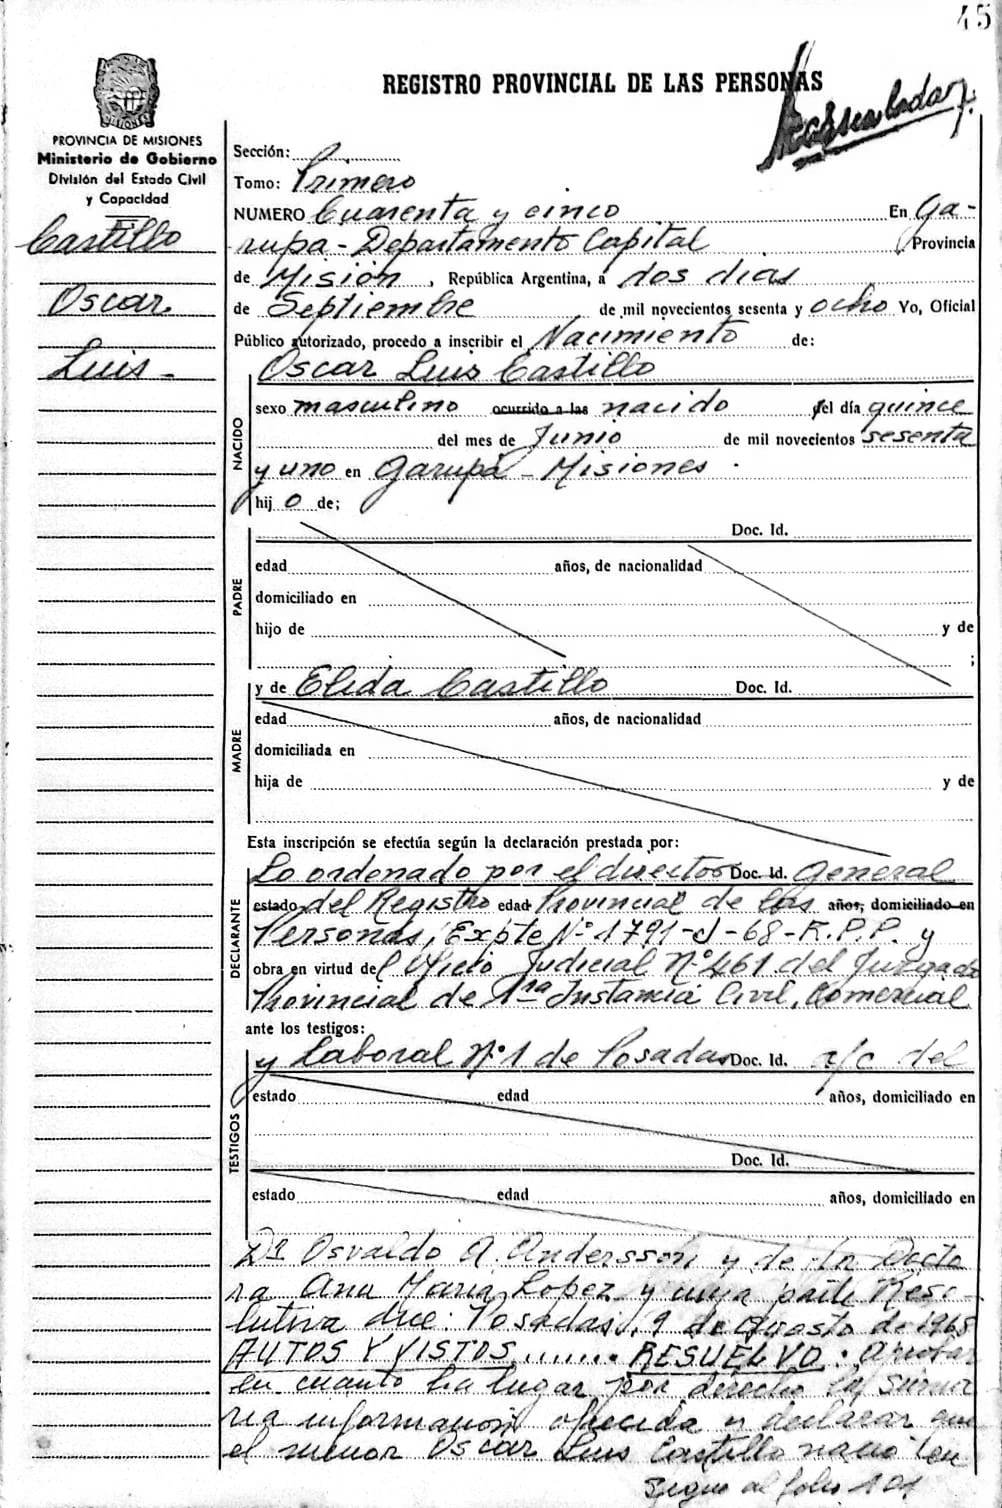 45
REGISTRO PROVINCIAL DE LAS PERSONAS
PROVINCIA DE MISIONES
Ministerio de Gobierno
División del Estado Civil
y Capacidad
Castillo
Oscar
Luis -
Sección:
Tomo: Primero
NUMERO Cuarenta y cinco En Ga-
rupa - Departamento Capital Provincia
de Misión, República Argentina, a dos dias
de Septiembre de mil novecientos sesenta y ocho Yo, Oficial
Público autorizado, procedo a inscribir el Nacimiento de:
Oscar Luis Castillo
NACIDO
sexo masculino ocurrido a las nacido del día quince
del mes de Junio de mil novecientos sesenta
y uno en Garupá - Misiones.
hijo de;
PADRE
Doc. Id.
edad años, de nacionalidad
domiciliado en
hijo de y de
;
MADRE
y de Elida Castillo Doc. Id.
edad años, de nacionalidad
domiciliada en
hija de y de
Esta inscripción se efectúa según la declaración prestada por:
DECLARANTE
Lo ordenado por el director Doc. Id. General
estado del Registro edad Provincial de las años, domiciliado en
Personas, Expte Nº 1791-J-68-R.P.P. y
obra en virtud del Oficio Judicial Nº 461 del Juzgado
Provincial de 1ra Instancia Civil, Comercial
ante los testigos:
TESTIGOS
y Laboral Nº 1 de Posadas Doc. Id. a/c del
estado edad años, domiciliado en
Doc. Id.
estado edad años, domiciliado en
Dr Osvaldo A. Andersson y de la Docto
ra Ana Maria Lopez y cuya parte Reso-
lutiva dice: Posadas, 9 de Agosto de 1968
AUTOS Y VISTOS....... RESUELVO: Aprobar
en cuanto ha lugar por derecho la suma
ria información ofrecida y declarar que
el menor Oscar Luis Castillo nació en
Sigue al folio 101